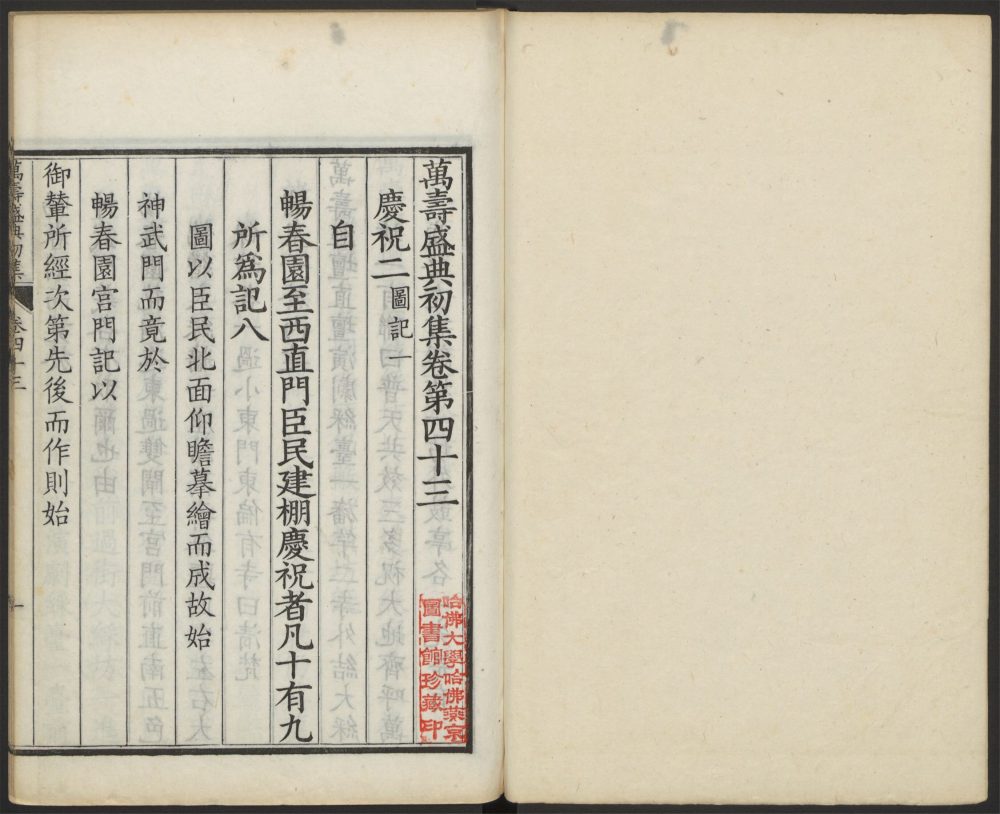 萬壽盛典初集卷第四十三
慶祝二 圖記一
自
暢春園至西直門臣民建棚慶祝者凡十有九
所爲記八
圖以臣民北面仰瞻摹繪而成故始
神武門而竟於
暢春園宮門記以
御輦所經次第先後而作則始
萬壽盛典初集 卷四十三 一
哈佛大學哈佛燕京
圖書館珍藏印